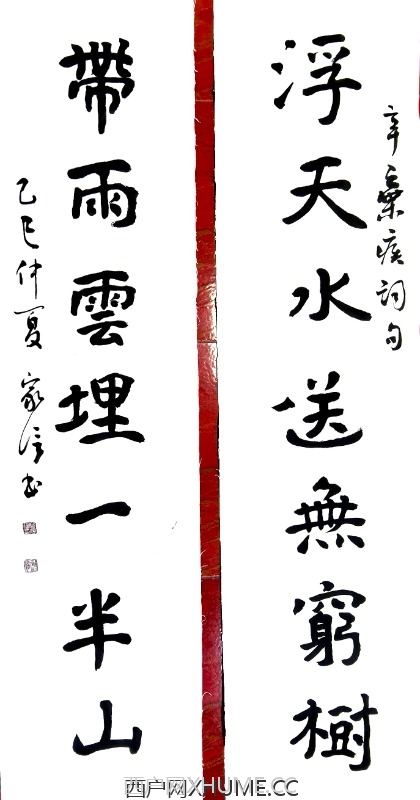 辛棄疾詞句
浮天水送無窮樹
帶雨雲埋一半山
乙巳仲夏家信书
西户网XHUME.CC